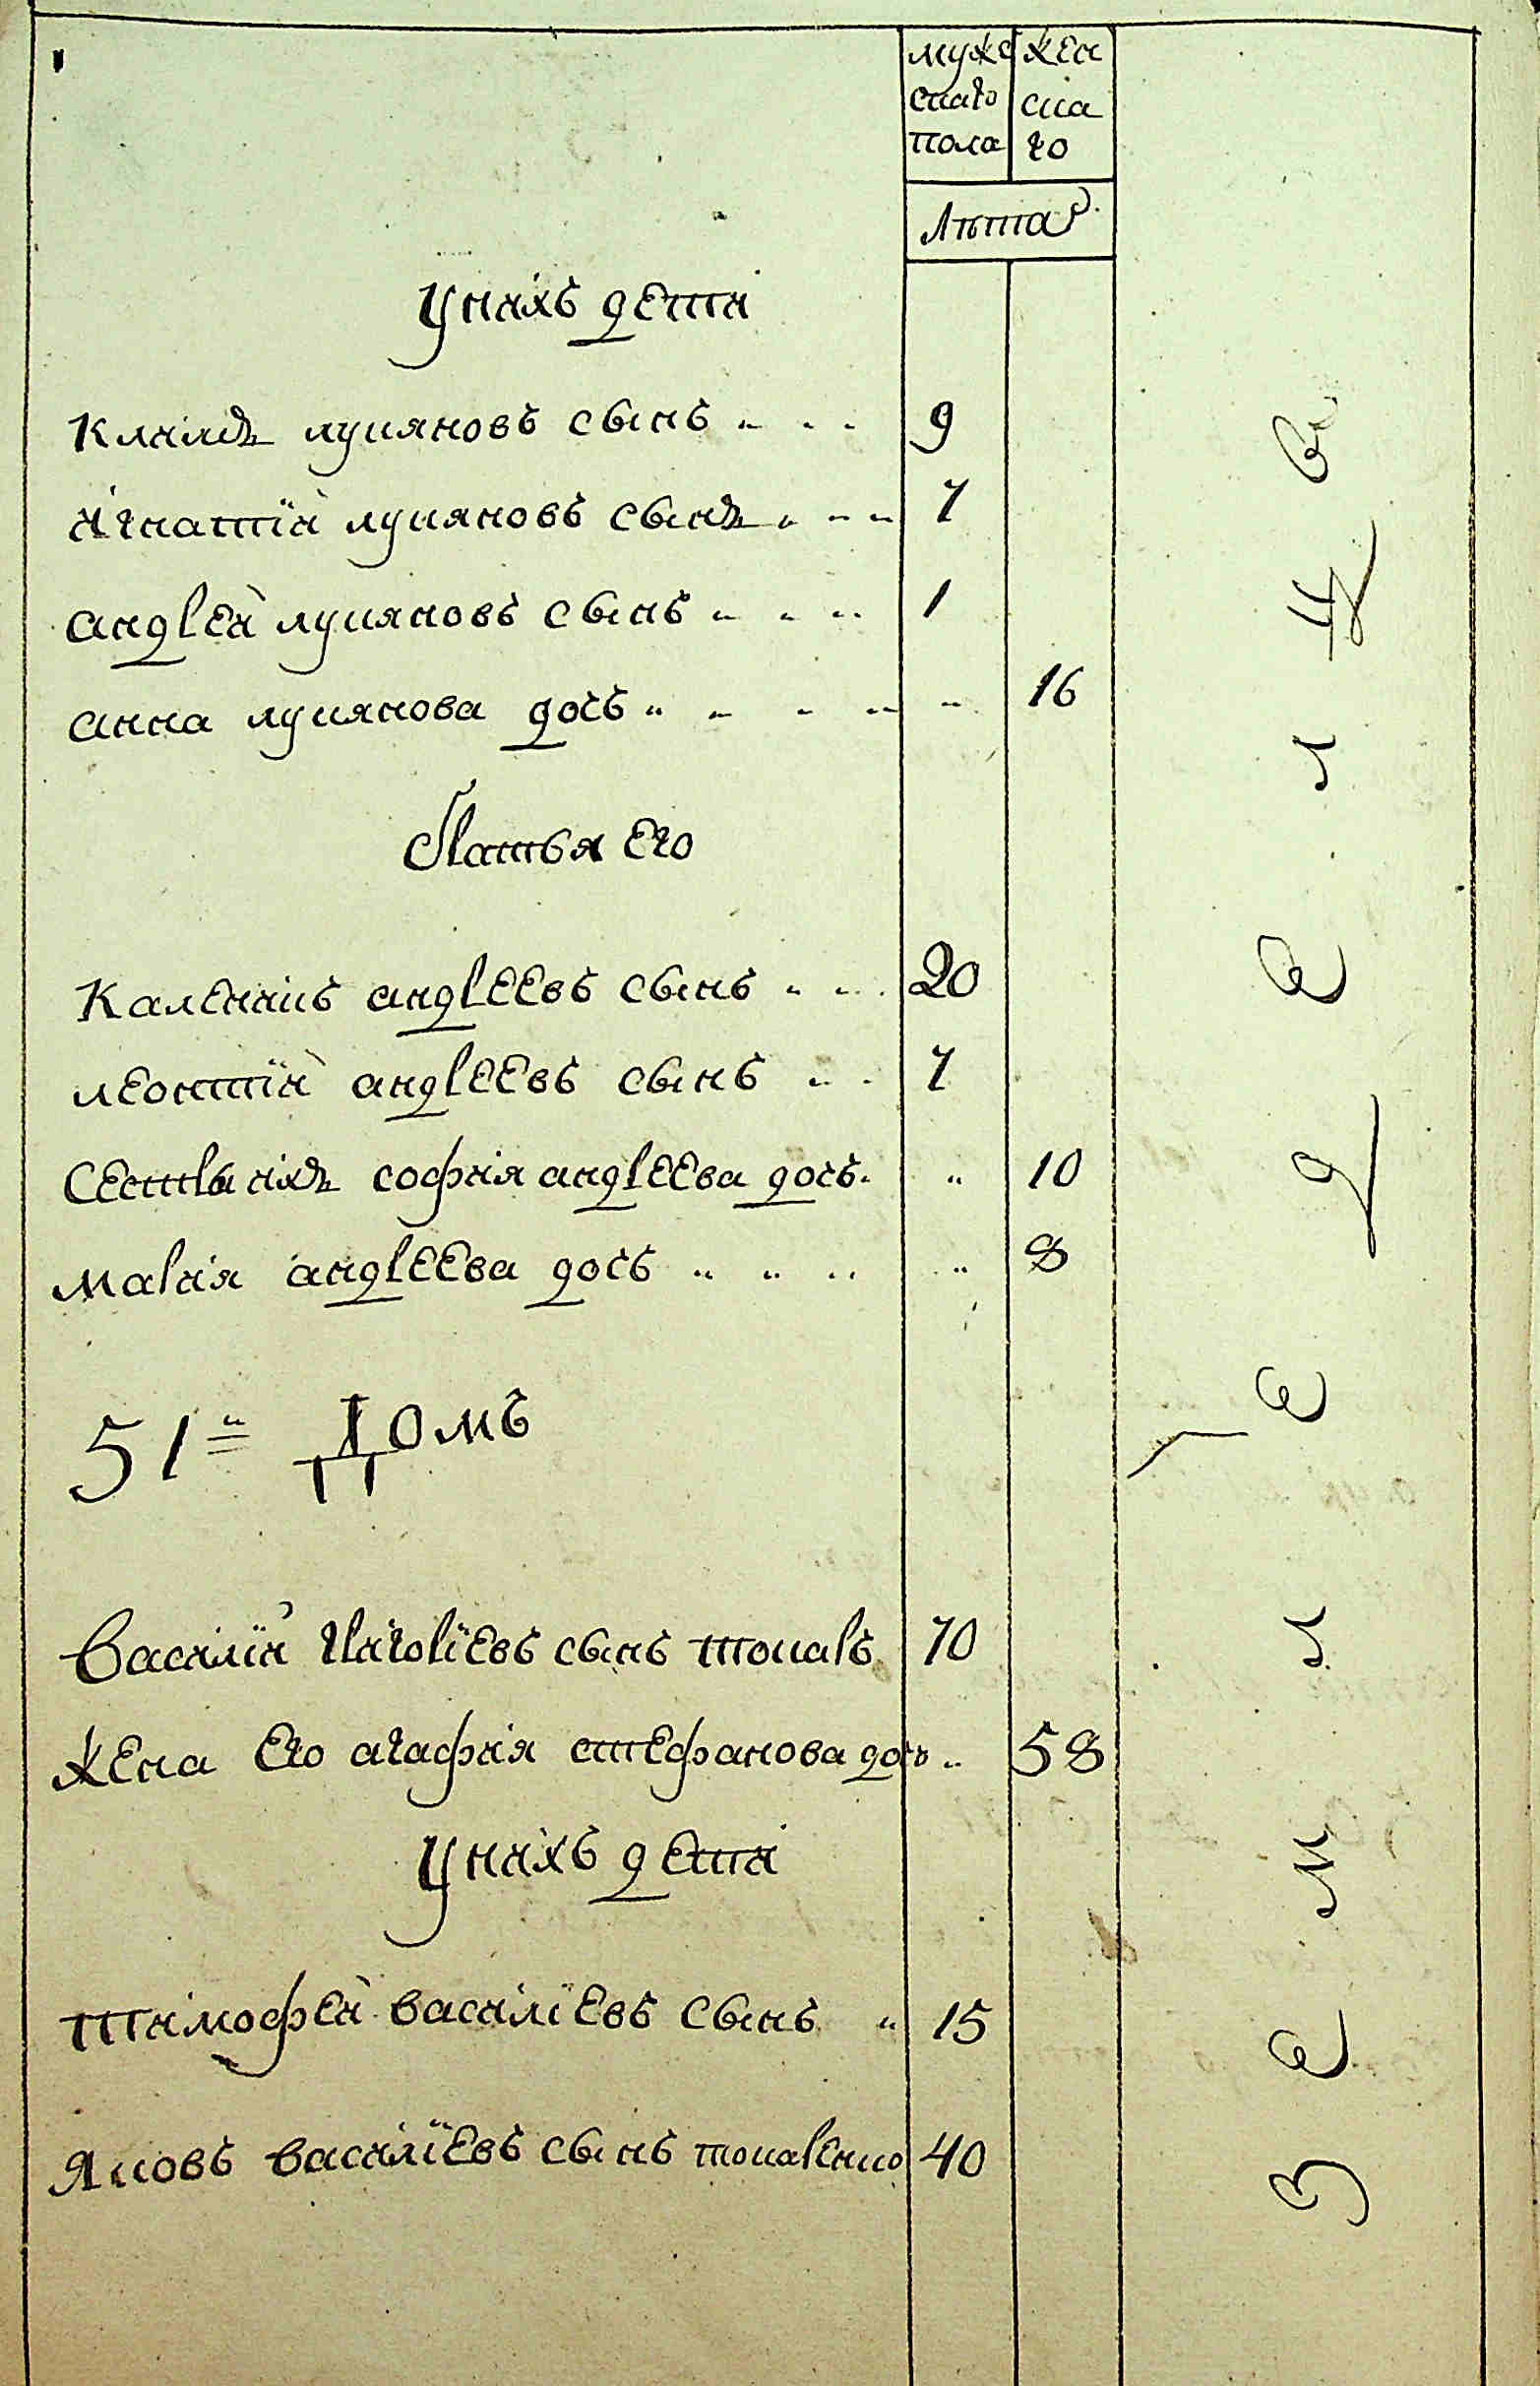 муже жен
скаго ска
пола го
Лѣта
У нихъ дети
Климъ лукяновъ сынъ 9
игнатїй лукяновъ сынъ 7
андрей лукяновъ сынъ 1
анна лукянова дочь 16
Братья его
Каленикъ андреевъ сынъ 20
леонтїй андреевъ сынъ 7
Сестры ихъ софия андреева дочь 10
мария андреева дочь 8
51 Домъ
Василїй Григорїевъ сынъ токарь 70
жена его агафия стефанова дочь 58
У нихъ дети
тимофей василїевъ сынъ 15
Яковъ василїевъ сынъ токаренко 40
Земледелцы